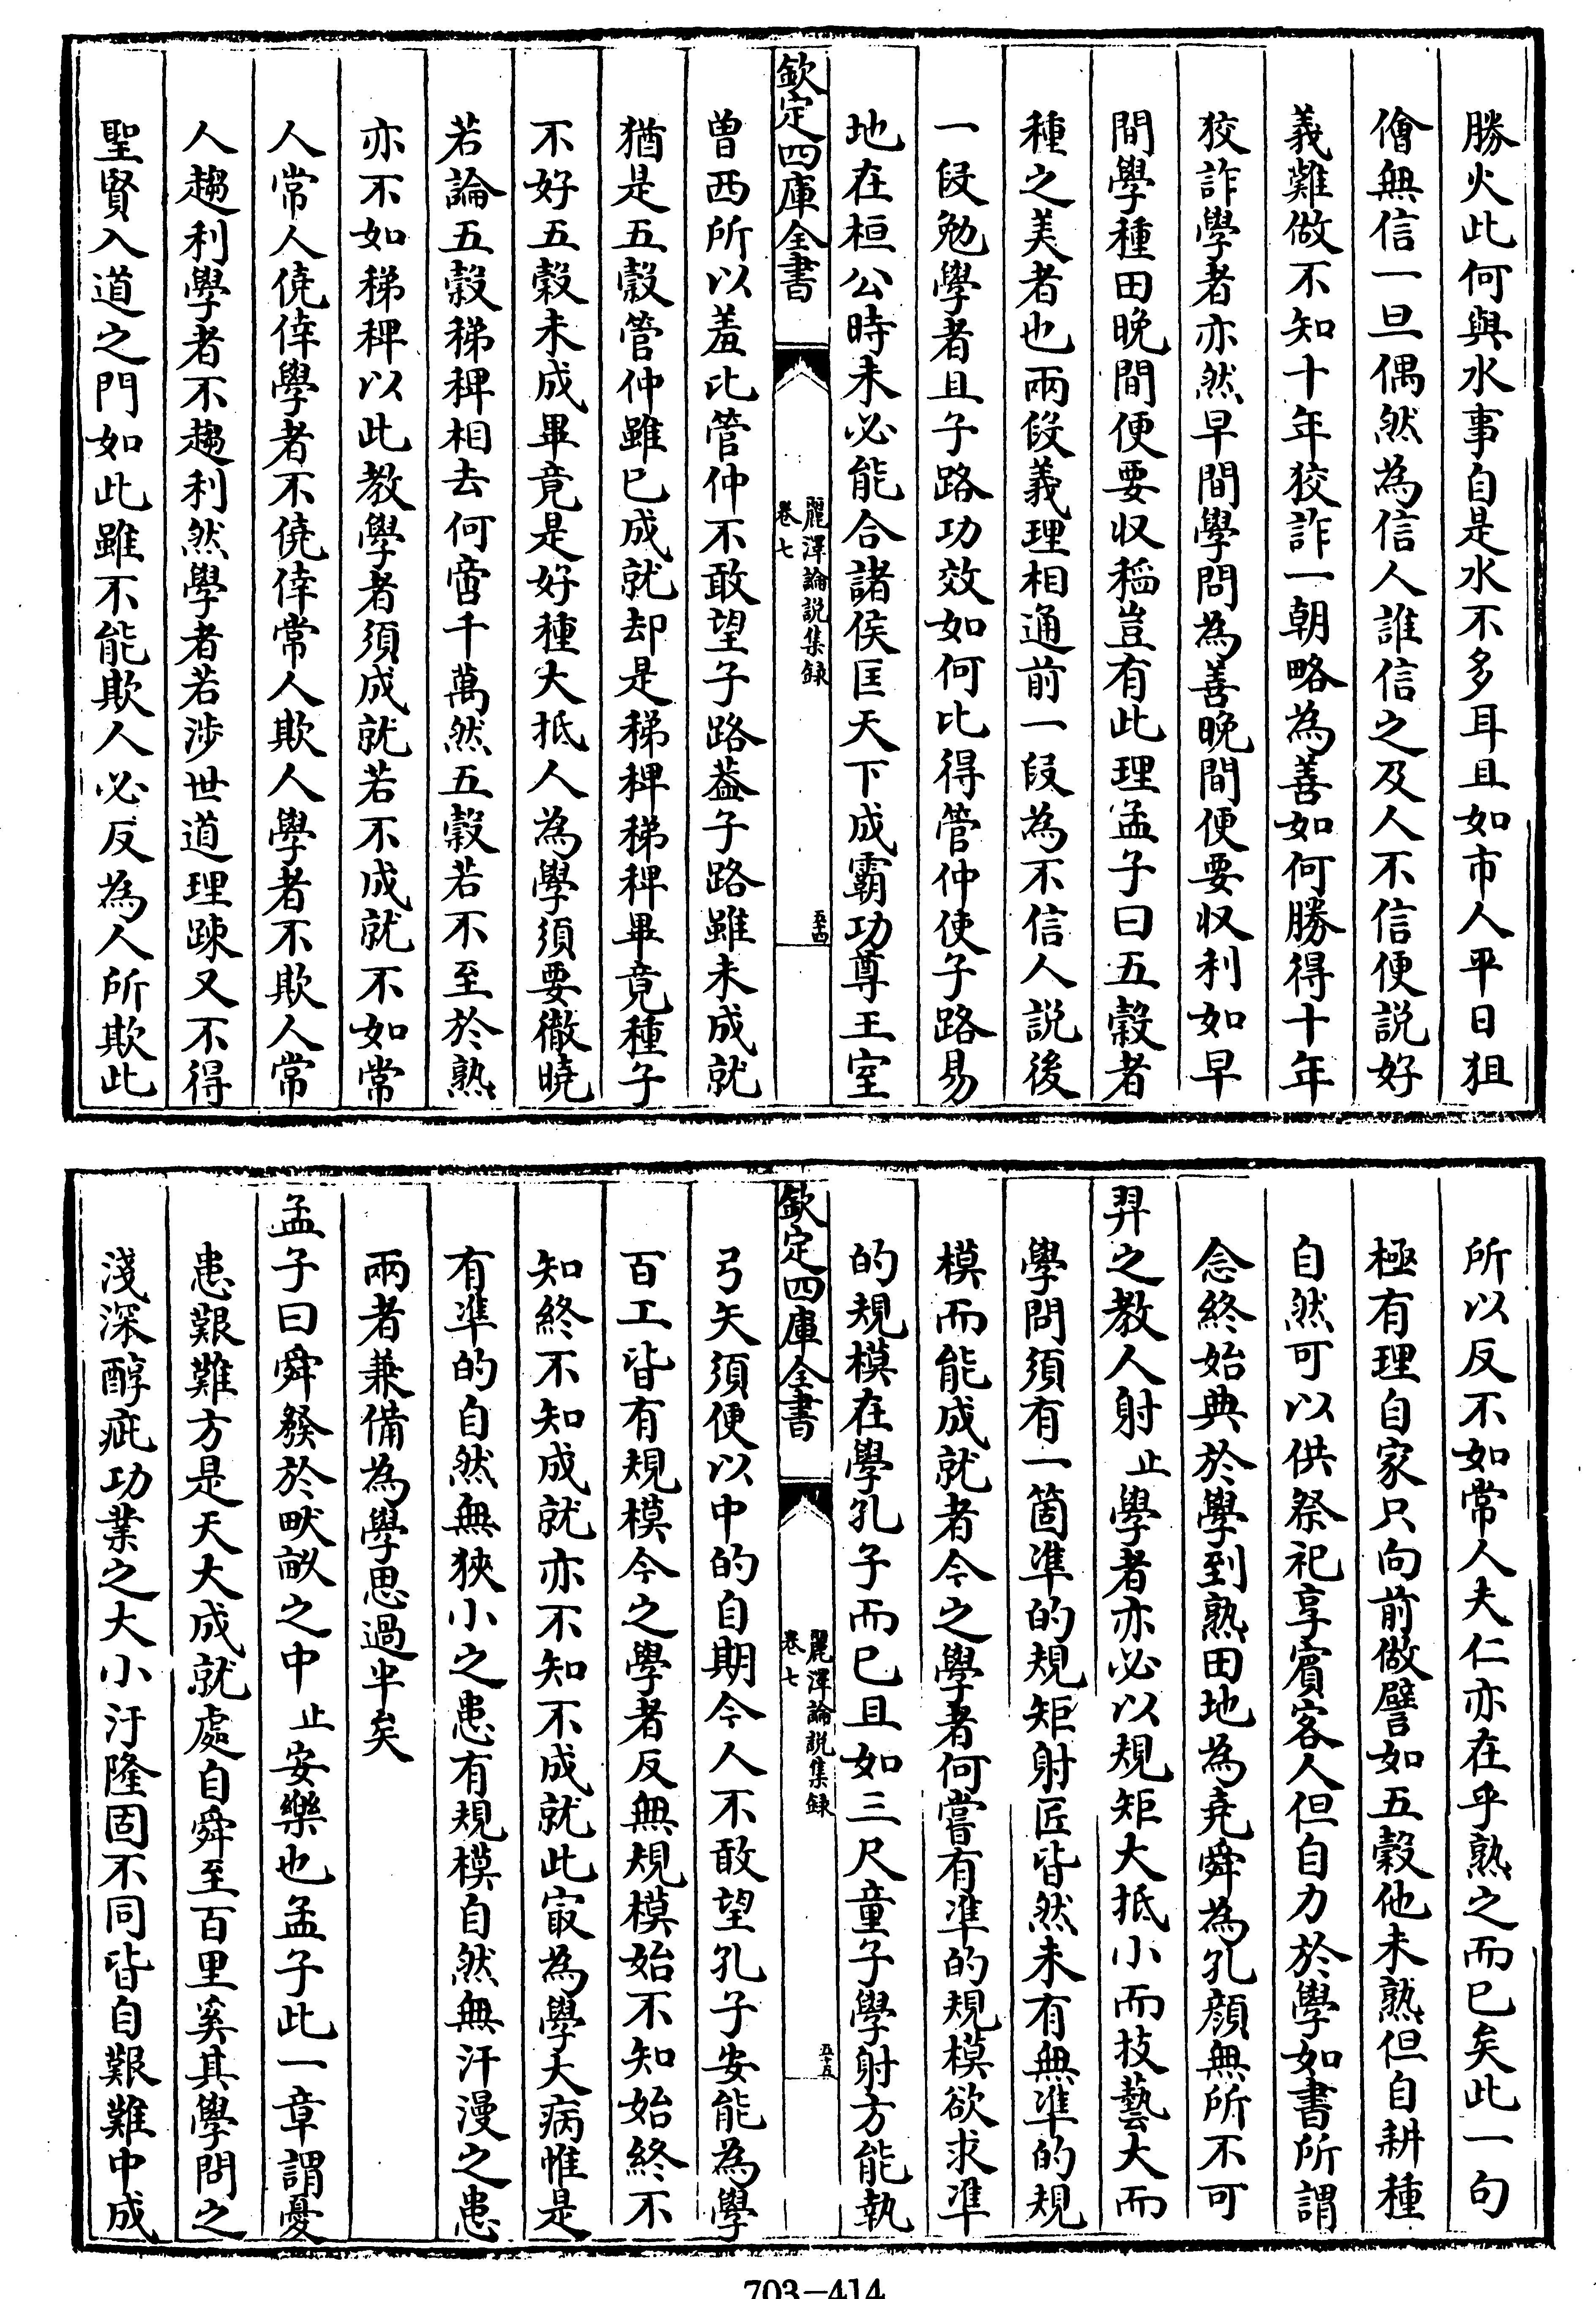 勝火此何與水事自是水不多耳且如市人平日狙
儈無信一旦偶然為信人誰信之及人不信便説好
義難做不知十年狡詐一朝略為善如何勝得十年
狡詐學者亦然早間學問為善晚間便要収利如早
間學種田晚間便要収稻豈有此理孟子曰五穀者
種之美者也兩段義理相通前一段為不信人説後
一段勉學者且子路功效如何比得管仲使子路易
地在桓公時未必能合諸侯匡天下成霸功尊王室
欽定四庫全書
麗澤論説集録
卷七
五十四
曾西所以羞比管仲不敢望子路葢子路雖未成就
猶是五穀管仲雖已成就却是稊稗稊稗畢竟種子
不好五穀未成畢竟是好種大抵人為學須要徹曉
若論五穀稊稗相去何啻千萬然五穀若不至於熟
亦不如稊稗以此教學者須成就若不成就不如常
人常人僥倖學者不僥倖常人欺人學者不欺人常
人趨利學者不趨利然學者若涉世道理踈又不得
聖賢入道之門如此雖不能欺人必反為人所欺此
所以反不如常人夫仁亦在乎熟之而已矣此一句
極有理自家只向前做譬如五穀他未熟但自耕種
自然可以供祭祀享賓客人但自力於學如書所謂
念終始典於學到熟田地為堯舜為孔顔無所不可
羿之教人射止學者亦必以規矩大抵小而技藝大而
學問須有一箇凖的規矩射匠皆然未有無凖的規
模而能成就者今之學者何嘗有凖的規模欲求凖
的規模在學孔子而已且如三尺童子學射方能執
欽定四庫全書
麗澤論説集録
卷七
五十五
弓矢須便以中的自期今人不敢望孔子安能為學
百工皆有規模今之學者反無規模始不知始終不
知終不知成就亦不知不成就此㝡為學大病惟是
有凖的自然無狹小之患有規模自然無汗漫之患
兩者兼備為學思過半矣
孟子曰舜發於畎畝之中止安樂也孟子此一章謂憂
患艱難方是天大成就處自舜至百里奚其學問之
淺深醇疵功業之大小汙隆固不同皆自艱難中成
703—414